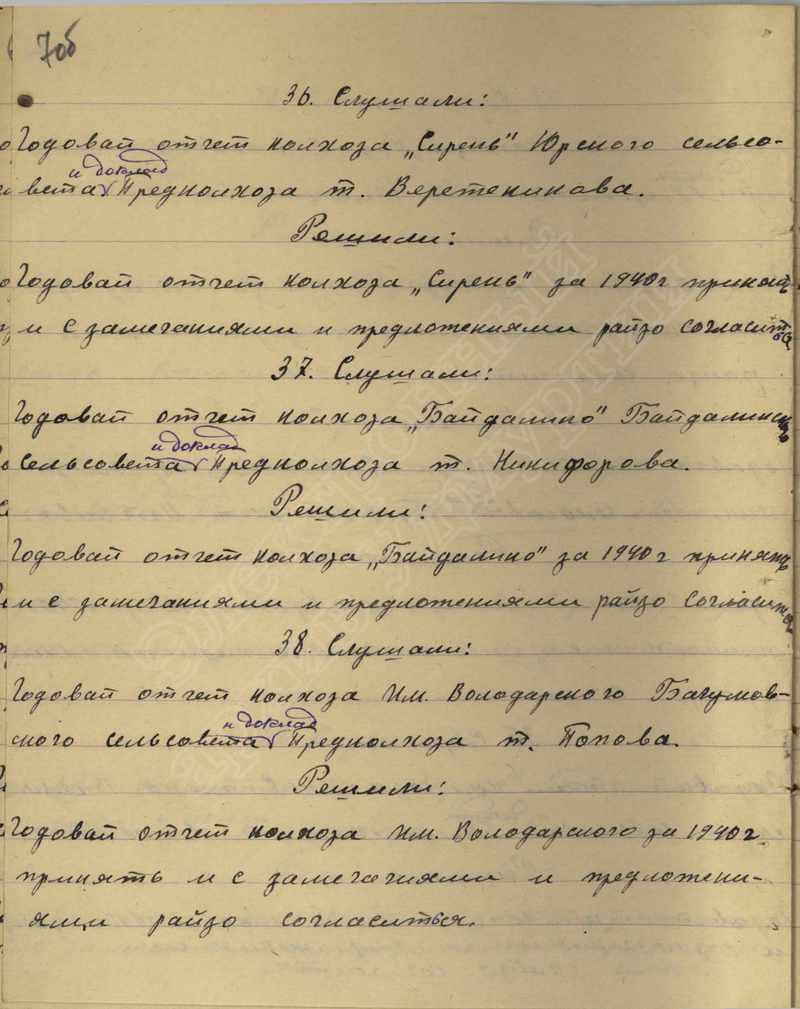 7об
36. Слушали:
Годовай отчет колхоза „Сирень" Юрского сельсо-
и доклад
вета Предколхоза т. Веретеникова.
Решили:
Годовай отчет колхоза „Сирень" за 1940г принять
и с замечаниями и предложениями райзо согласиться
37. Слушали:
Годовай отчет колхоза „Байдалино" Байдалинск
и доклад
сельсовета Предколхоза т. Никифорова.
Решили:
Годовай отчет колхоза „Байдалино" за 1940г принять
и с замечаниями и предложениями райзо согласиться
38. Слушали:
Годовай отчет колхоза Им. Володарского Бачумов-
и доклад
ского сельсовета Предколхоза т. Попова.
Решили:
Годовай отчет колхоза Им. Володарского за 1940г.
принять и с замечаниями и предложени-
ями райзо согласиться.